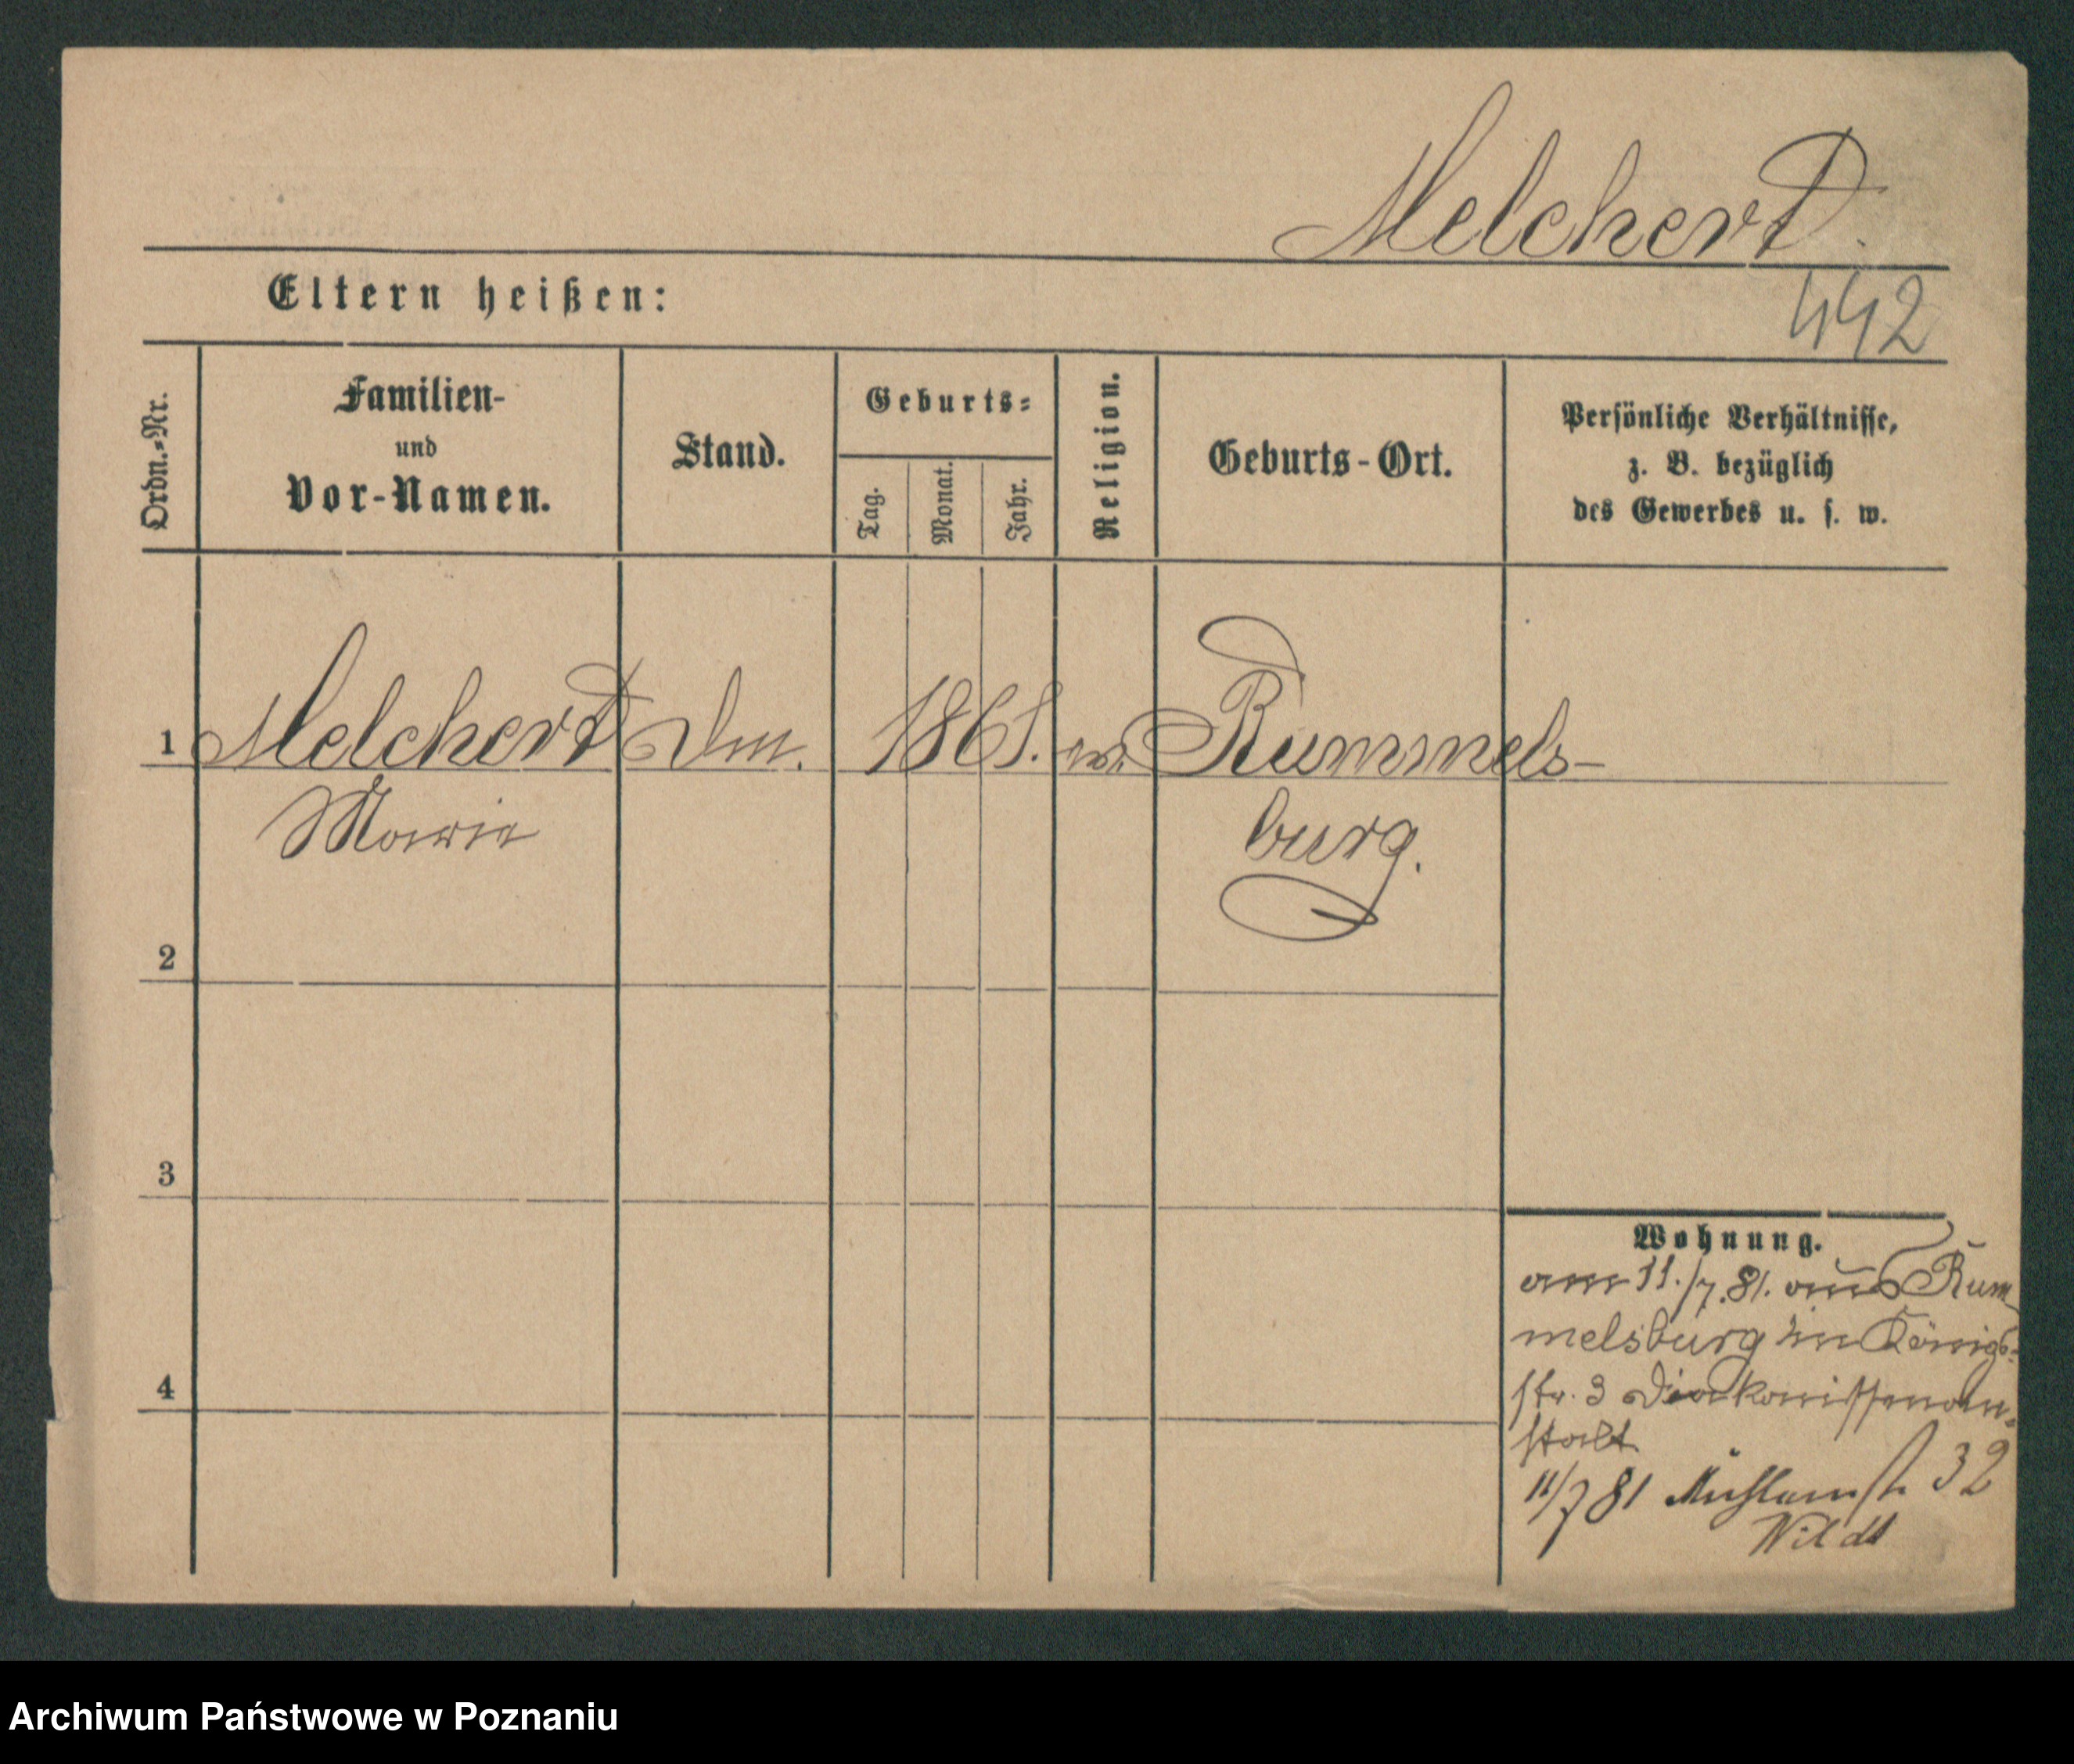 Melchert.
Eltern heißen:
442
Ordn.-Nr.
Familien-
und
Vor-Namen.
Stand.
Geburts-
Tag.
Monat.
Jahr.
Religion.
Geburts-Ort.
Persönliche Verhältnisse,
z. B. bezüglich
des Gewerbes u. s. w.
1 Melchert 1861. ev. Rummels-
Marie burg.
2
3
4
Wohnung.
am 11./7.81. aus Rum-
melsburg in Königs-
str. 3 Diakonissenan-
stalt
11/7 81 Mühlenstr 32
Archiwum Państwowe w Poznaniu